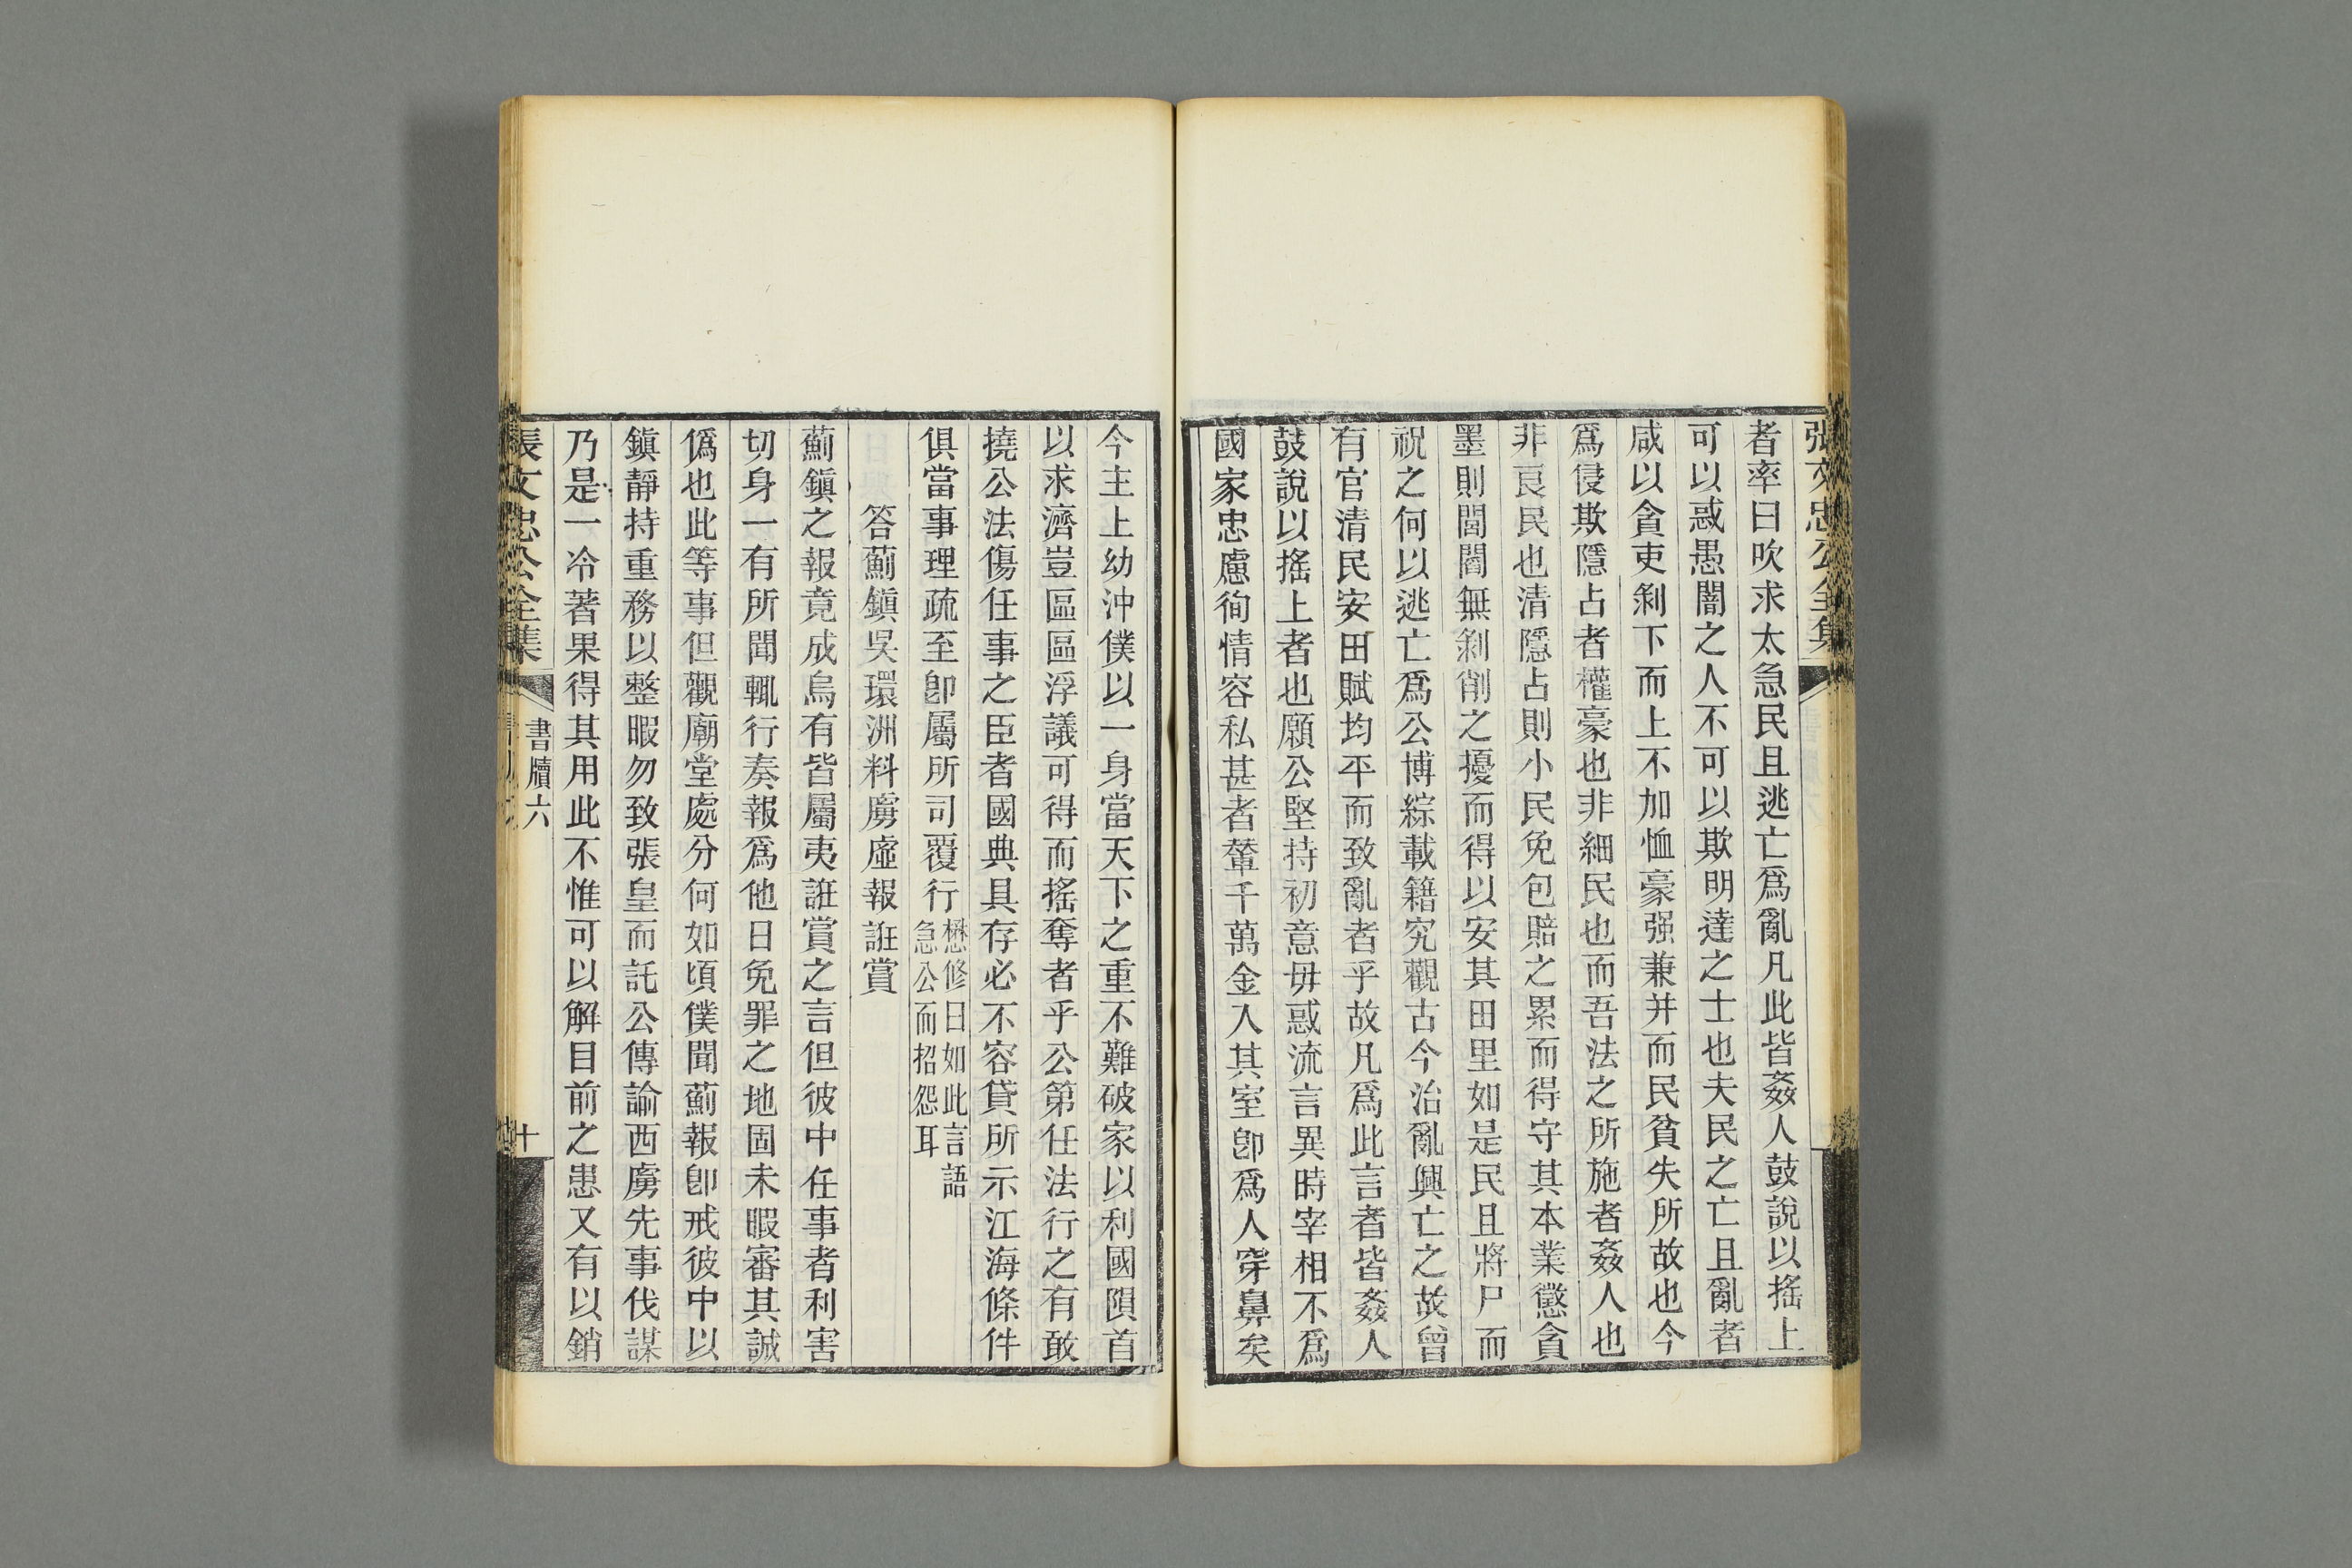 張文忠公全集
者率曰吹求太急民且逃亡爲亂凡此皆姦人鼓說以搖上
可以惑愚闇之人不可以欺明達之士也夫民之亡且亂者
咸以貪吏剝下而上不加恤豪强兼并而民貧失所故也今
爲侵欺隱占者權豪也非細民也而吾法之所施者姦人也
非良民也清隱占則小民免包賠之累而得守其本業懲貪
墨則閭閻無剝削之擾而得以安其田里如是民且將尸而
祝之何以逃亡爲公博綜載籍究觀古今治亂興亡之故曾
有官清民安田賦均平而致亂者乎故凡爲此言者皆姦人
鼓說以搖上者也願公堅持初意毋惑流言異時宰相不爲
國家忠慮徇情容私甚者輦千萬金入其室卽爲人穿鼻矣
今主上幼沖僕以一身當天下之重不難破家以利國隕首
以求濟豈區區浮議可得而搖奪者乎公第任法行之有敢
撓公法傷任事之臣者國典具存必不容貸所示江海條件
俱當事理疏至卽屬所司覆行懋修曰如此言語急公而招怨耳
答薊鎭吳環洲料虜虛報誑賞
薊鎭之報竟成烏有皆屬夷誑賞之言但彼中任事者利害
切身一有所聞輒行奏報爲他日免罪之地固未暇審其誠
僞也此等事但觀廟堂處分何如頃僕聞薊報卽戒彼中以
鎭靜持重務以整暇勿致張皇而託公傳諭西虜先事伐謀
乃是一冷著果得其用此不惟可以解目前之患又有以銷
張文忠公全集
書牘六
十